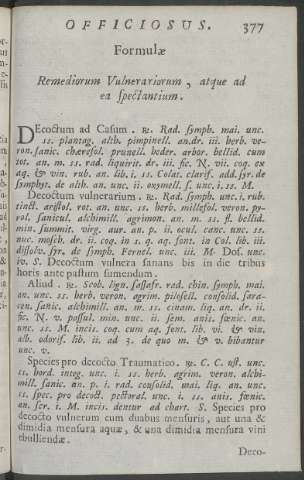 OFFICIOSUS. 377
Formulæ
Remediorum Vulnerariorum, atque ad
ea spectantium.
DEcoctum ad Casum. ℞. Rad. symph. mai. unc.
ss. plantag. alth. pimpinell. an. dr. iii. herb. ve-
ron. sanic. chærefol. prunell. heder. arbor. bellid. cum
tot. an. m. ss. rad. liquirit. dr. iii. fic. N. vii. coq. ex
aq. & vin. rub. an. lib. i. ss. Colat. clarif. add. syr. de
symphyt. de alth. an. unc. ii. oxymell. s. unc. i. ss. M.
Decoctum vulnerarium. ℞. Rad. symph. unc. i. rub.
tinct. arestol. rot. an. unc. ss. herb. millefol. veron. py-
rol. sanicul. alchimill. agrimon. an. m. ss. fl. bellid.
min. summit. virg. aur. an. p. ii. ocul. canc. unc. ss.
nuc. mosch. dr. ii. coq. in s. q. aq. font. in Col. lib. iii.
dissolv. syr. de symph. Fernel. unc. iii. M. Dos. unc.
iv. S. Decoctum vulnera sanans bis in die tribus
horis ante pastum sumendum.
Aliud. ℞. Scob. lign. sassafr. rad. chin. symph. mai.
an. unc. ss. herb. veron. agrim. pilosell. consolid. sara-
cen. sanic. alchimill. an. m. ss. cinam. liq. an. dr. ii.
fic. N. v. passul. min. unc. ii. sem. anis. fœnic. an.
unc. ss. M. incis. coq. cum aq. font. lib. vi. & vin.
alb. odorif. lib. ii. ad 3. de quo m. & v. bibantur
unc. v.
Species pro decocto Traumatico. ℞. C. C. ust. unc.
ss. hord. integ. unc. i. ss. herb. agrim. veron. alchi-
mill. sanic. an. p. i. rad. consolid. mai. liq. an. unc.
ss. spec. pro decoct. pectoral. unc. i. ss. anis. fœnic.
an. scr. i. M. incis. dentur ad chart. S. Species pro
decocto vulnerum cum duabus mensuris, aut una &
dimidia mensura aquæ, & una dimidia mensura vini
ebulliendæ.
Deco-